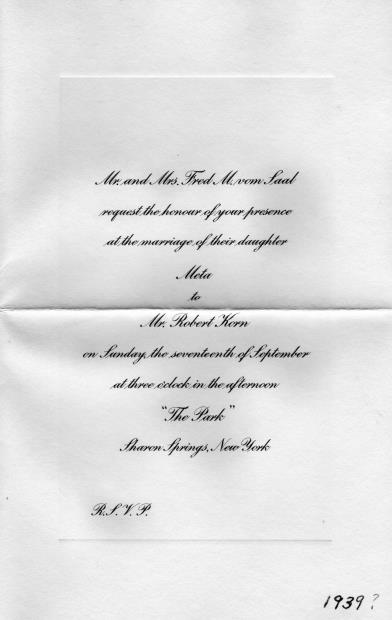 Mr. and Mrs. Fred M. vom Saal
request the honour of your presence
at the marriage of their daughter
Meta
to
Mr. Robert Korn
on Sunday, the seventeenth of September
at three o'clock in the afternoon
"The Park"
Sharon Springs, New York
R.S.V.P.
1939?